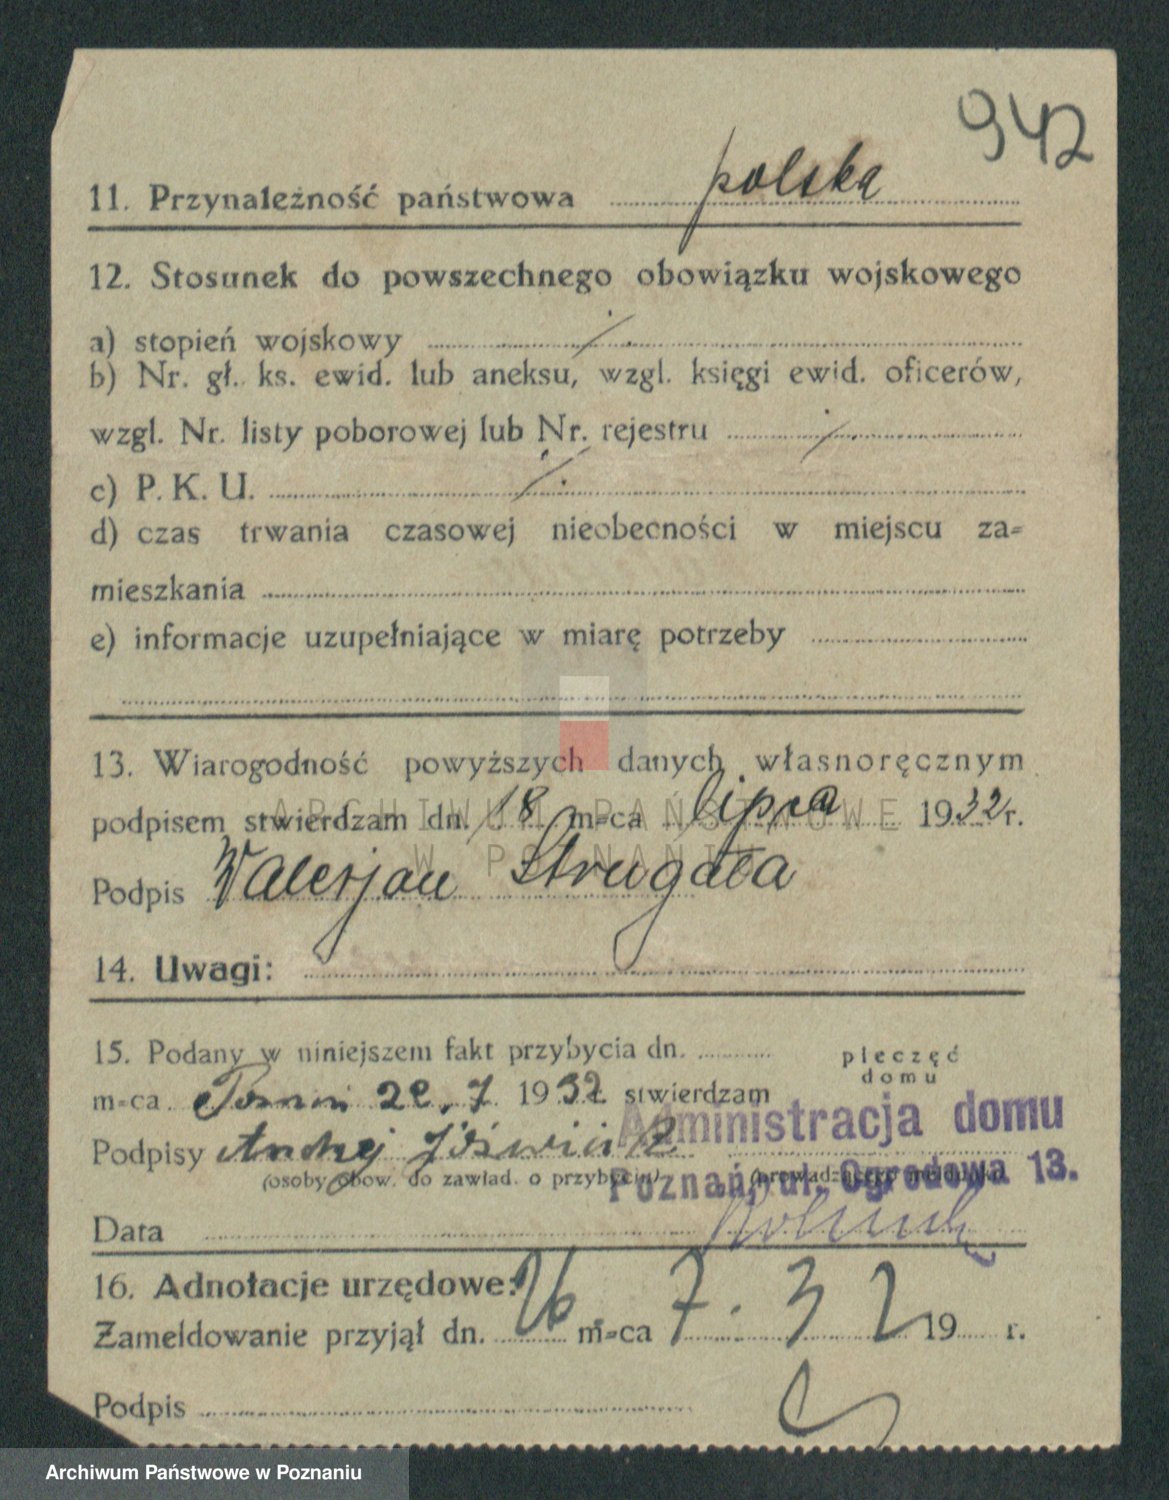 942
11. Przynależność państwowa polska
12. Stosunek do powszechnego obowiązku wojskowego
a) stopień wojskowy ./.
b) Nr. gł. ks. ewid. lub aneksu, wzgl. księgi ewid. oficerów,
wzgl. Nr. listy poborowej lub Nr. rejestru ./.
c) P. K. U. ./.
d) czas trwania czasowej nieobecności w miejscu za=
mieszkania
e) informacje uzupełniające w miarę potrzeby
13. Wiarogodność powyższych danych własnoręcznym
ARCHIWUM PAŃSTWOWE
podpisem stwierdzam dn. 18 m=ca lipca 1932 r.
W POZNANIU
Podpis Walerjan Strugała
14. Uwagi:
15. Podany w niniejszem fakt przybycia dn.
pieczęć
domu
m=ca 22.7 1932 stwierdzam
Administracja domu
Podpisy Andrzej
(osoby obow. do zawiad. o przybyciu)
Poznań, ul. Ogrodowa 13.
Data
16. Adnotacje urzędowe:
Zameldowanie przyjął dn. 26 m=ca 7. 32 19 r.
Podpis
Archiwum Państwowe w Poznaniu